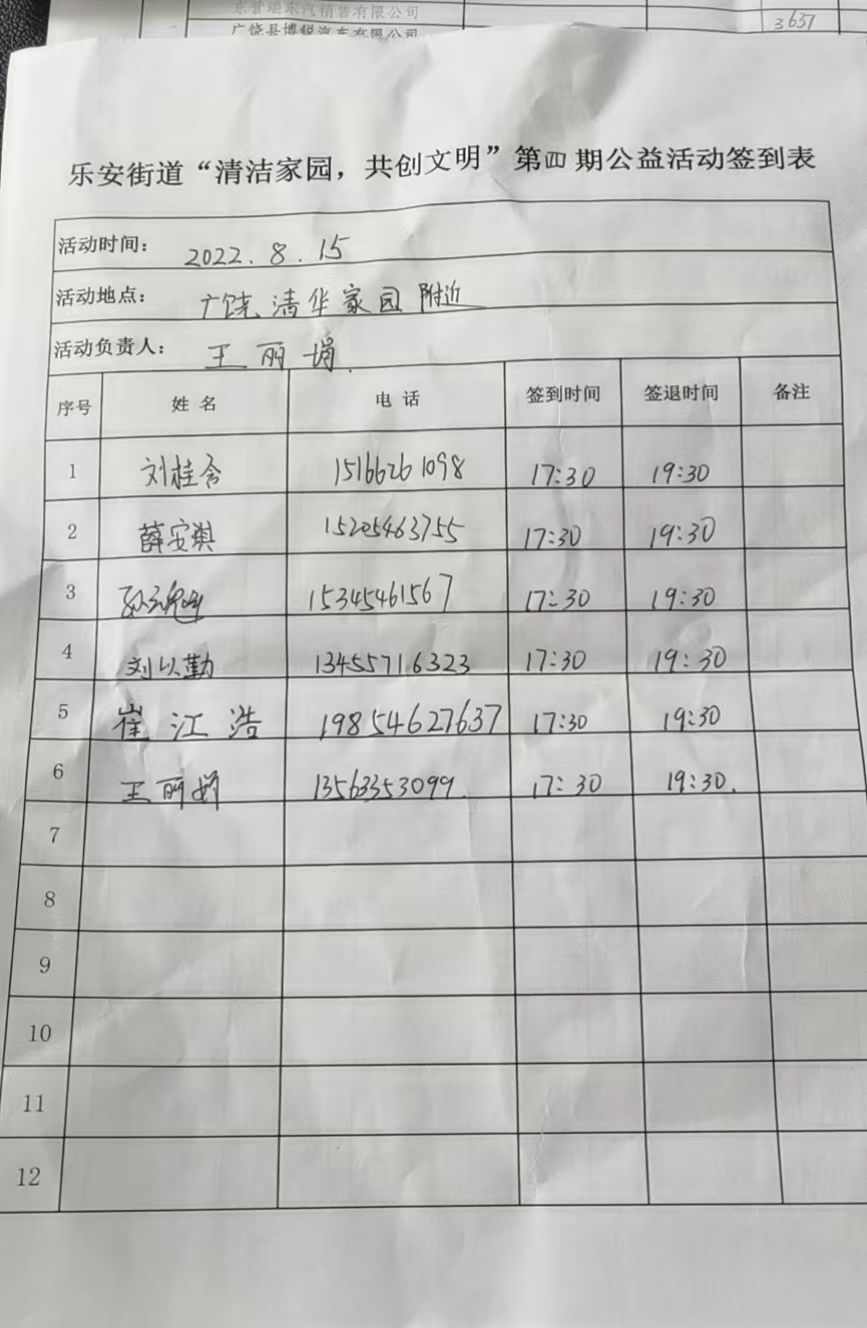 广饶县博锐汽车有限公司
3637
乐安街道“清洁家园，共创文明”第四期公益活动签到表
活动时间： 2022.8.15
活动地点： 广饶清华家园附近
活动负责人： 王丽娟.
序号 姓名 电话 签到时间 签退时间 备注
1 刘桂含 15166261098 17:30 19:30
2 薛安琪 15205463755 17:30 19:30
3 15345461567 17:30 19:30
4 刘以勤 13455716323 17:30 19:30
5 崔江浩 19854627637 17:30 19:30
6 王丽娟 13563353099. 17:30 19:30.
7
8
9
10
11
12